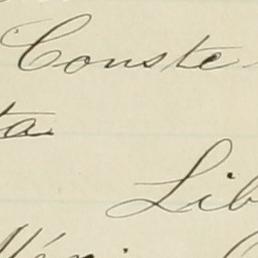 Conste
ta
Lib